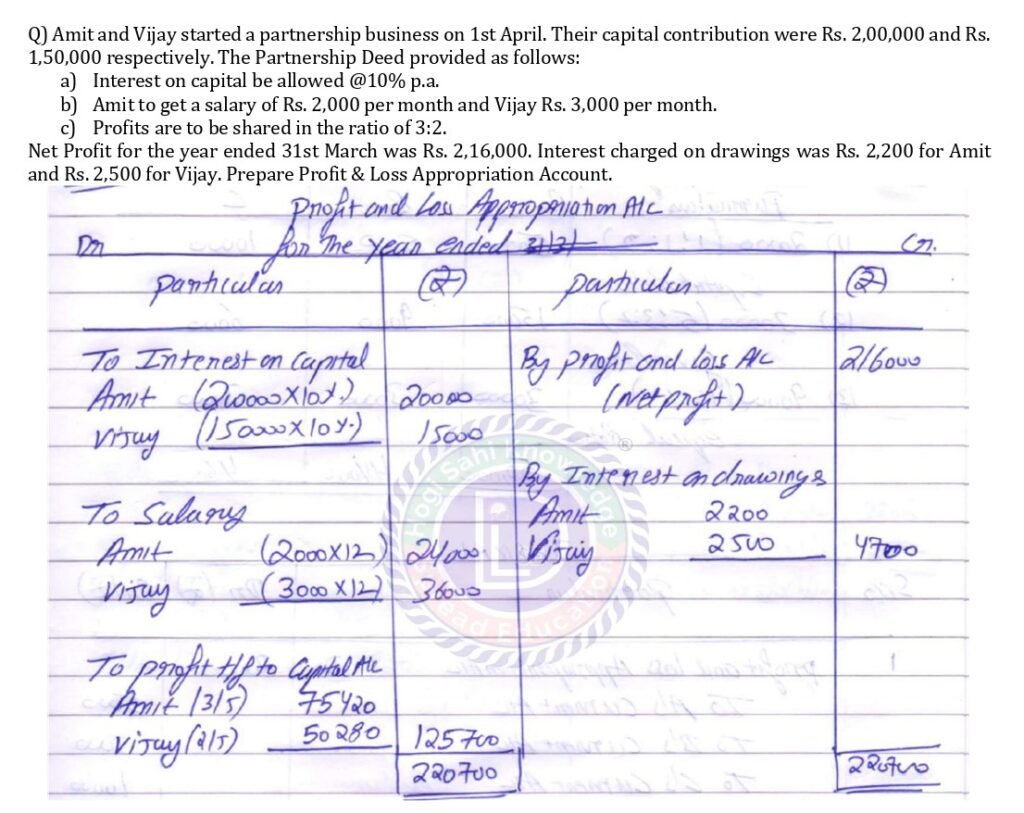 Q) Amit and Vijay started a partnership business on 1st April. Their capital contribution were Rs. 2,00,000 and Rs.
1,50,000 respectively. The Partnership Deed provided as follows:
a) Interest on capital be allowed @10% p.a.
b) Amit to get a salary of Rs. 2,000 per month and Vijay Rs. 3,000 per month.
c) Profits are to be shared in the ratio of 3:2.
Net Profit for the year ended 31st March was Rs. 2,16,000. Interest charged on drawings was Rs. 2,200 for Amit
and Rs. 2,500 for Vijay. Prepare Profit & Loss Appropriation Account.
Profit and Loss Appropriation A/c
Dr for the year ended 31/3/ Cr.
particulars (₹) particulars (₹)
To Interest on Capital By profit and loss A/c 216000
Amit (200000X10%) 20000 (Net profit)
Vijay (150000X10%) 15000
By Interest on drawings
To Salary Amit 2200
Amit (2000X12) 24000 Vijay 2500 4700
Vijay (3000X12) 36000
To profit t/f to Capital A/c
Amit (3/5) 75420
Vijay (2/5) 50280 125700
220700 220700
Hogi Sahi Know
dge
ead Education